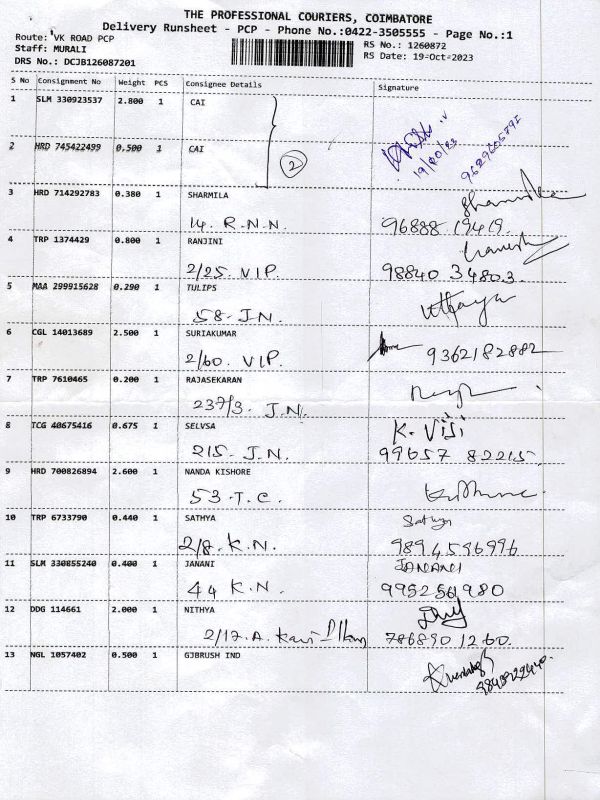 THE PROFESSIONAL COURIERS, COIMBATORE
Delivery Runsheet - PCP - Phone No.:0422-3505555 - Page No.:1
Route: VK ROAD PCP
RS No.: 1260872
Staff: MURALI
RS Date: 19-Oct-2023
DRS No.: DCJB126087201
S No Consignment No Weight PCS Consignee Details Signature
1 SLM 330923537 2.800 1 CAI
19/10/23
2 HRD 745422499 0.500 1 CAI
2
3 HRD 714292783 0.380 1 SHARMILA
14. R.N.N. 96888 19419.
4 TRP 1374429 0.800 1 RANJINI
2/25. VIP. 98840 34803.
5 MAA 299915628 0.290 1 TULIPS
58. J.N.
6 CGL 14013689 2.500 1 SURIAKUMAR
2/60. VIP. 9362182882
7 TRP 7610465 0.200 1 RAJASEKARAN
237/3. J.N.
8 TCG 40675416 0.675 1 SELVSA K. Viji
215. J.N. 99657 82215.
9 HRD 700826894 2.600 1 NANDA KISHORE
53.T.C.
10 TRP 6733790 0.440 1 SATHYA Sathya
2/8. K.N. 9894596996
11 SLM 330855240 0.400 1 JANANI JANANI
44 K.N. 9952561980
12 DDG 114661 2.000 1 NITHYA
2/17.A. 786890 1260.
13 NGL 1057402 0.500 1 GJBRUSH IND